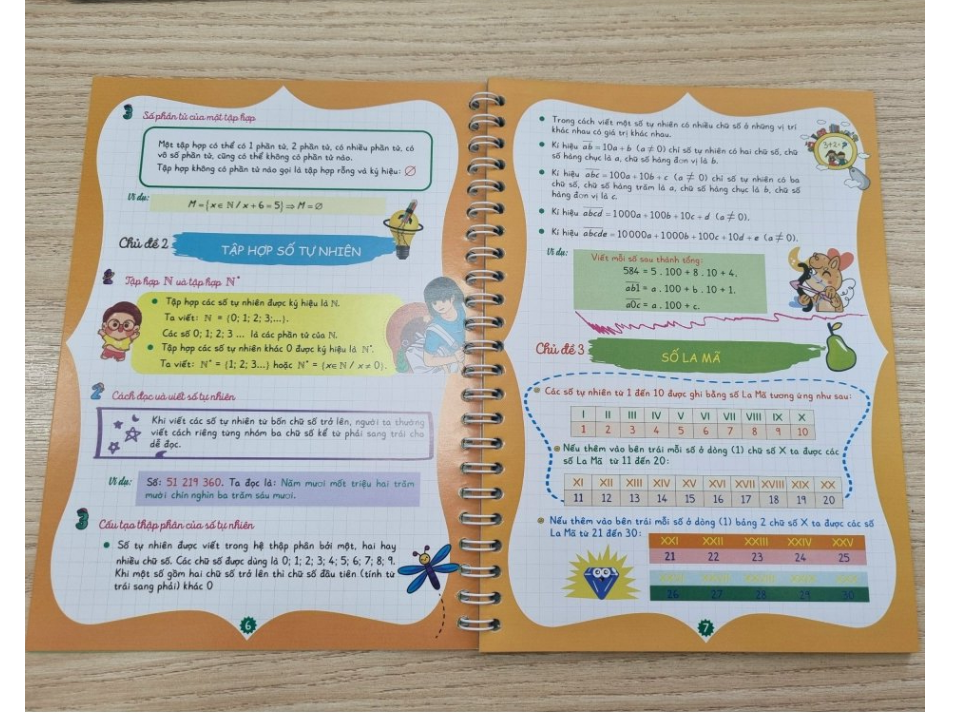 3 Số phần tử của một tập hợp
Một tập hợp có thể có 1 phần tử, 2 phần tử, có nhiều phần tử, có
vô số phần tử, cũng có thể không có phần tử nào.
Tập hợp không có phần tử nào gọi là tập hợp rỗng và ký hiệu: ∅
Ví dụ:
M = {x ∈ N / x + 6 = 5} ⇒ M = ∅
Chủ đề 2
TẬP HỢP SỐ TỰ NHIÊN
1 Tập hợp N và tập hợp N*
• Tập hợp các số tự nhiên được ký hiệu là N.
Ta viết: N = {0; 1; 2; 3;...}.
Các số 0; 1; 2; 3 ... là các phần tử của N.
• Tập hợp các số tự nhiên khác 0 được ký hiệu là N*.
Ta viết: N* = {1; 2; 3...} hoặc N* = {x∈ N / x ≠ 0}.
2 Cách đọc và viết số tự nhiên
Khi viết các số tự nhiên từ bốn chữ số trở lên, người ta thường
viết cách riêng từng nhóm ba chữ số kể từ phải sang trái cho
dễ đọc.
Ví dụ:
Số: 51 219 360. Ta đọc là: Năm mươi mốt triệu hai trăm
mười chín nghìn ba trăm sáu mươi.
3 Cấu tạo thập phân của số tự nhiên
• Số tự nhiên được viết trong hệ thập phân bởi một, hai hay
nhiều chữ số. Các chữ số được dùng là 0; 1; 2; 3; 4; 5; 6; 7; 8; 9.
Khi một số gồm hai chữ số trở lên thì chữ số đầu tiên (tính từ
trái sang phải) khác 0
6
• Trong cách viết một số tự nhiên có nhiều chữ số ở những vị trí
khác nhau có giá trị khác nhau.
• Kí hiệu a̅b̅ = 10a + b (a ≠ 0) chỉ số tự nhiên có hai chữ số, chữ
số hàng chục là a, chữ số hàng đơn vị là b.
• Kí hiệu a̅b̅c̅ = 100a + 10b + c (a ≠ 0) chỉ số tự nhiên có ba
chữ số, chữ số hàng trăm là a, chữ số hàng chục là b, chữ số
hàng đơn vị là c.
• Kí hiệu a̅b̅c̅d̅ = 1000a + 100b + 10c + d (a ≠ 0).
• Kí hiệu a̅b̅c̅d̅e̅ = 10000a + 1000b + 100c + 10d + e (a ≠ 0).
Ví dụ:
Viết mỗi số sau thành tổng:
584 = 5 . 100 + 8 . 10 + 4.
a̅b̅1̅ = a . 100 + b . 10 + 1.
a̅0̅c̅ = a . 100 + c.
Chủ đề 3
SỐ LA MÃ
• Các số tự nhiên từ 1 đến 10 được ghi bằng số La Mã tương ứng như sau:
I II III IV V VI VII VIII IX X
1 2 3 4 5 6 7 8 9 10
• Nếu thêm vào bên trái mỗi số ở dòng (1) chữ số X ta được các
số La Mã từ 11 đến 20:
XI XII XIII XIV XV XVI XVII XVIII XIX XX
11 12 13 14 15 16 17 18 19 20
• Nếu thêm vào bên trái mỗi số ở dòng (1) bảng 2 chữ số X ta được các số
La Mã từ 21 đến 30:
XXI XXII XXIII XXIV XXV
21 22 23 24 25
26 27 28 29 30
7